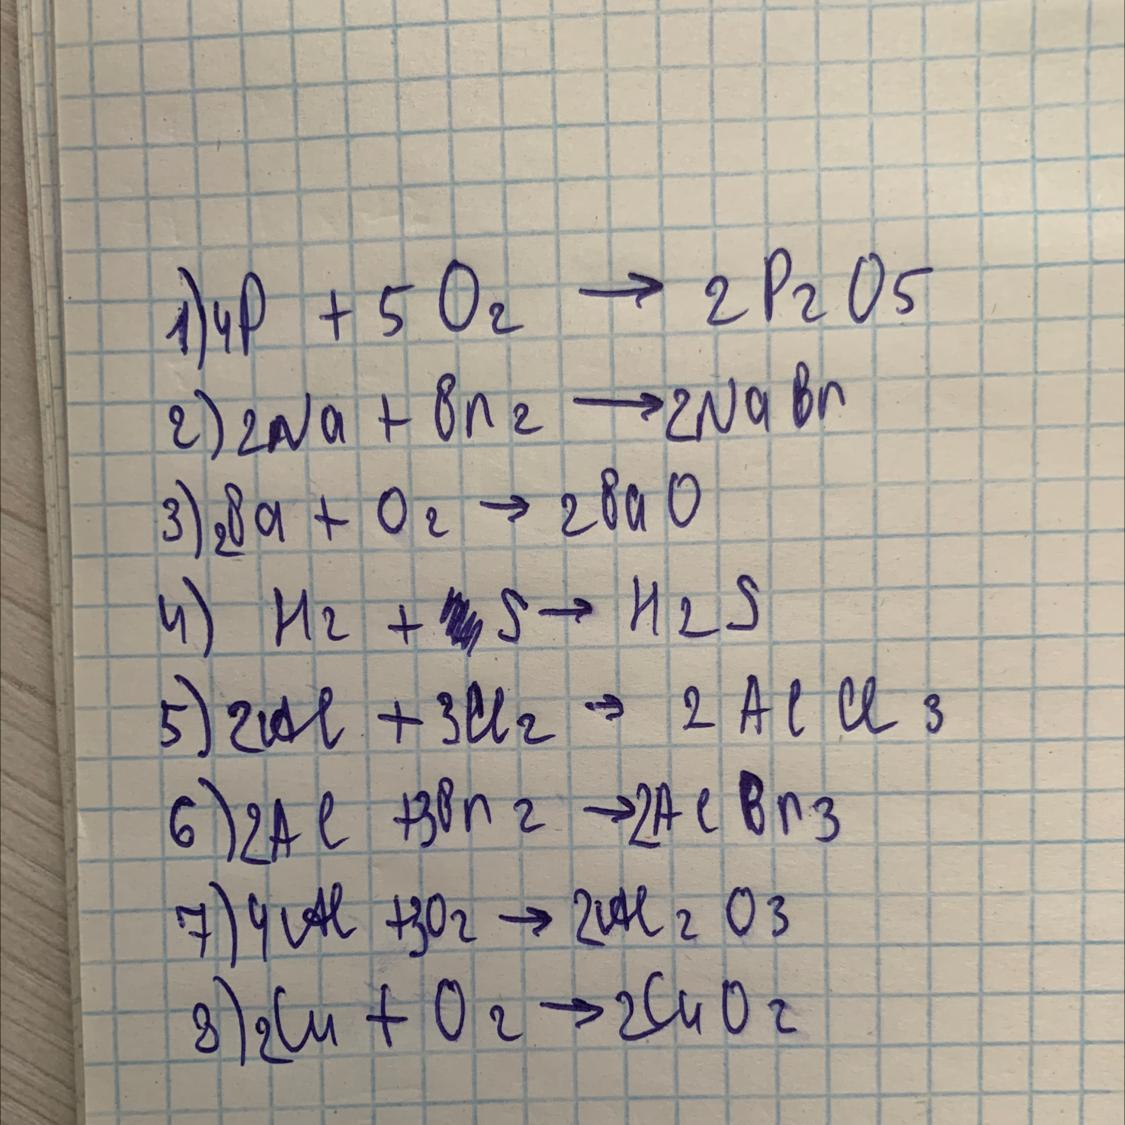 1) 4P + 5 O2 → 2 P2 O5
2) 2Na + Br2 → 2NaBr
3) 2Ba + O2 → 2BaO
4) H2 + S → H2S
5) 2Al + 3Cl2 → 2 AlCl3
6) 2Al + 3Br2 → 2AlBr3
7) 4Al + 3O2 → 2Al2O3
8) 2Cu + O2 → 2CuO2